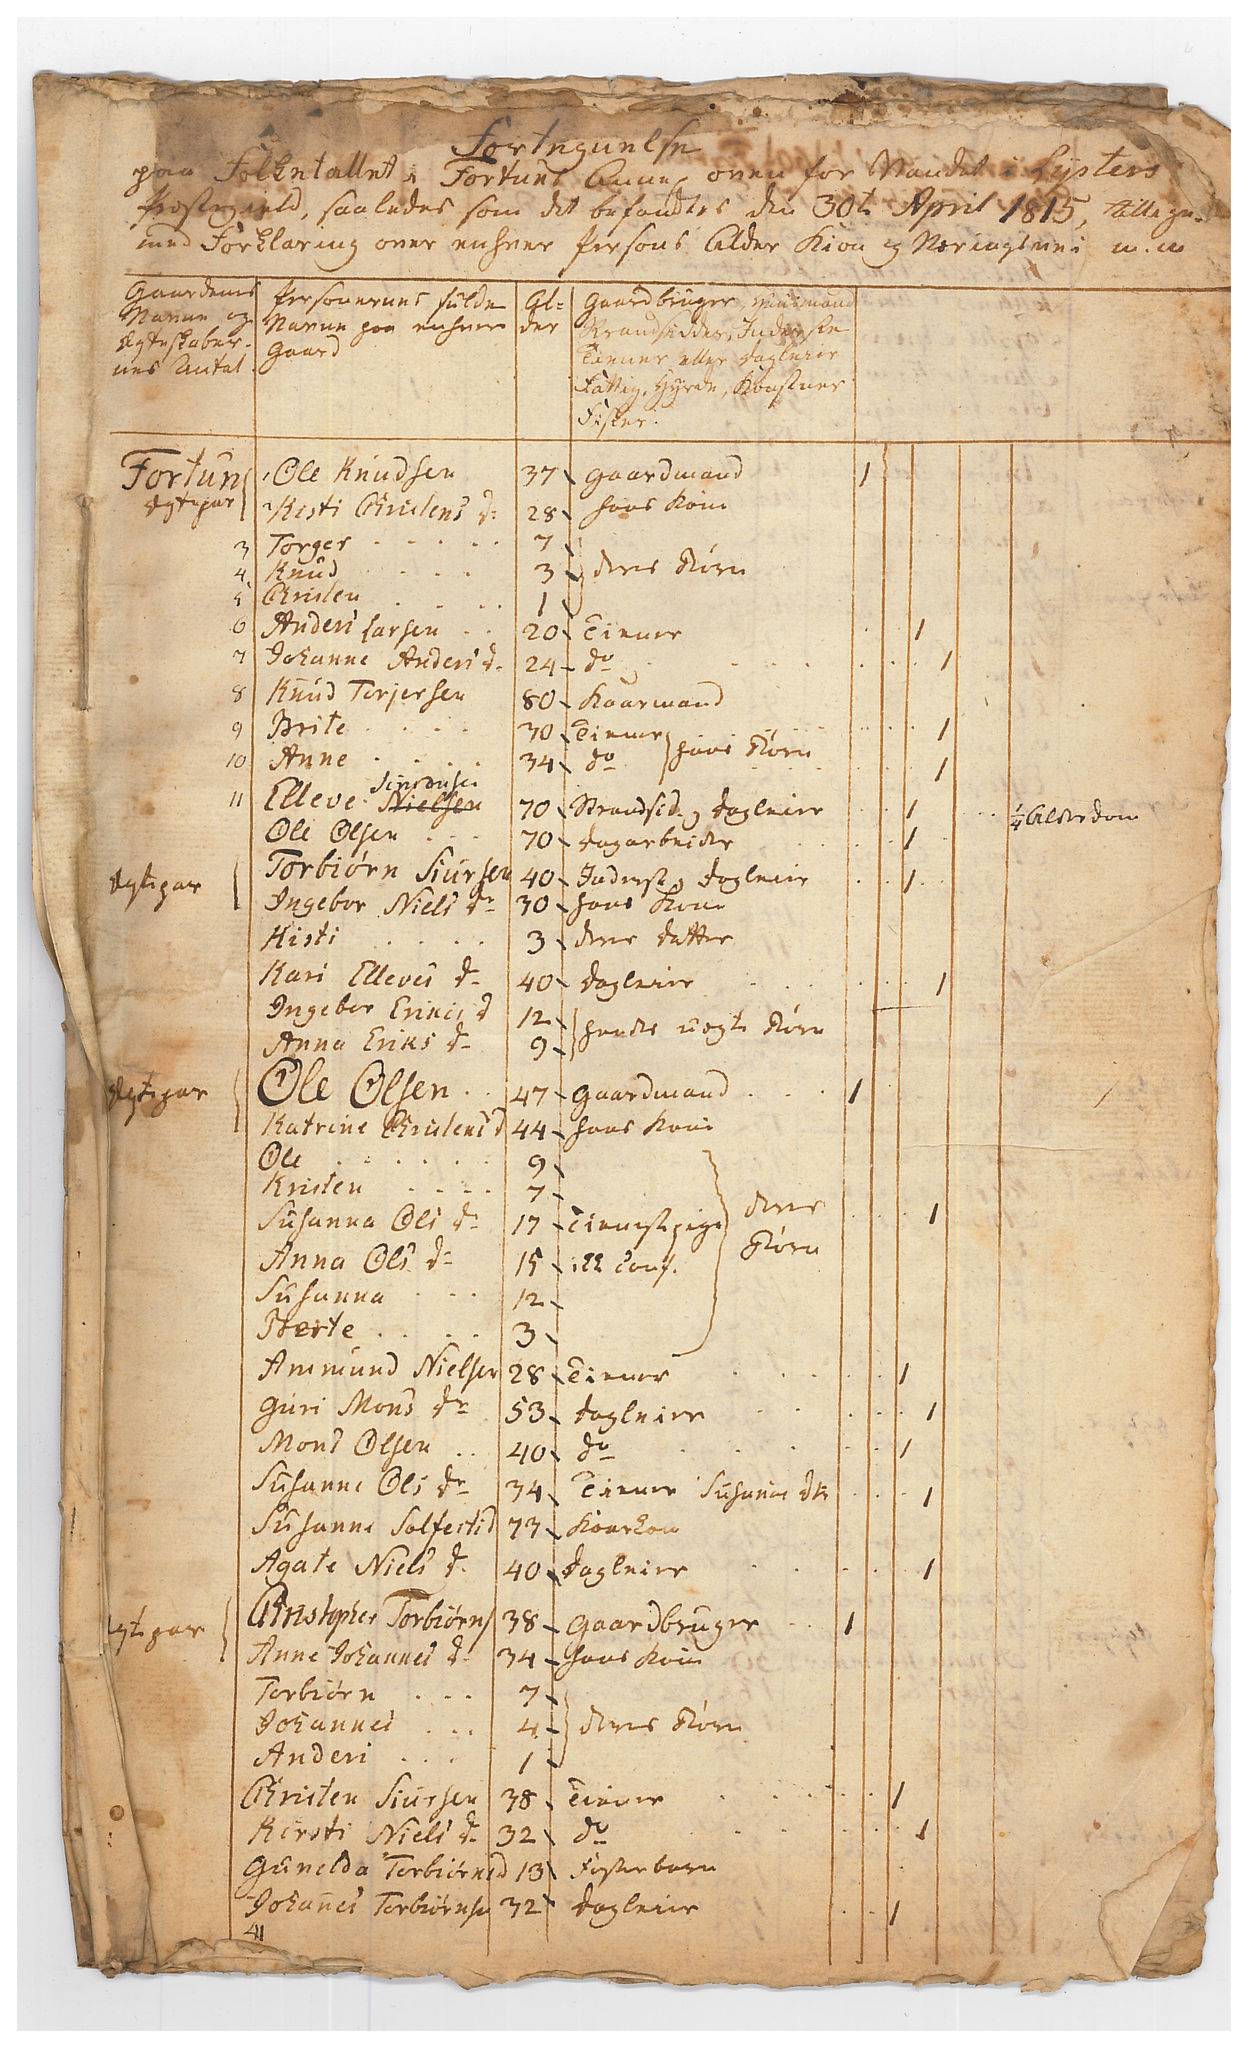 Fortegnelse
paa Folketallet i Fortuns Annex oven for Vandet i Lysters
Prestegield, saaledes som det befandtes den 30te April 1815, tillige
med Forklaring over enhver Persons Alder Kion og Næringsveie m. m
Gaardenes Navne og Ægteskabernes Antal
Personernes fulde Navne paa enhver Gaard
Alder
Gaardbruger, Huusmand Strandsidder, Inderste Tiener eller Dagleier Fattig, Hyrde, Konstner Fisker.
Fortun 1 Ole Knudsen 37 Gaardmand 1
Ægtepar 2 Kisti Christens d. 28 hans Kone
3 Torger 7
4 Knud 3 deres Børn
5 Christen 1
6 Anders Larsen 20 Tiener 1
7 Johanne Anders d. 24 do 1
8 Knud Torjersen 80 Kaarmand
9 Brite 30 Tiener 1
10 Anne 34 do hans Børn 1
11 Elleve Nielsen 70 Strandsid. og Dagleier 1 ¼ Alderdom
Ole Olsen 70 Dagarbeider 1
Ægtepar Torbiørn Siursen 40 Inderst og Dagleier 1
Ingebor Niels dr 30 hans Kone
Kisti 3 deres Datter
Kari Elleves d. 40 Dagleier 1
Ingebor Erikes d 12
Anna Eriks d. 9 hendes uægte Børn
Ægtepar Ole Olsen 47 Gaardmand 1
Katrine Christens d 44 hans Kone
Ole 9
Kristen 7
Susanna Ols d. 17 Tienestepige deres 1
Anna Ols d. 15 Børn
Susanna 12
Berte 3
Ammund Nielsen 28 Tiener 1
Guri Mons dr 53 Dagleier 1
Mons Olsen 40 do 1
Susanne Ols dr 34 Tiener 1
Susanne Solfestd 73 Kaarkone
Agate Niels d. 40 Dagleier 1
Ægtepar Christopher Torbiørns 38 Gaardbruger 1
Anne Johannes d. 34 hans Kone
Torbiørn 7
Johannes 4 deres Børn
Anders 1
Christen Siursen 38 Tiener 1
Kirsti Niels d. 32 do 1
Gunelda Torbiørnsd 13 Fosterbarn
Johanes Torbiørnsn 32 Dagleier 1
41